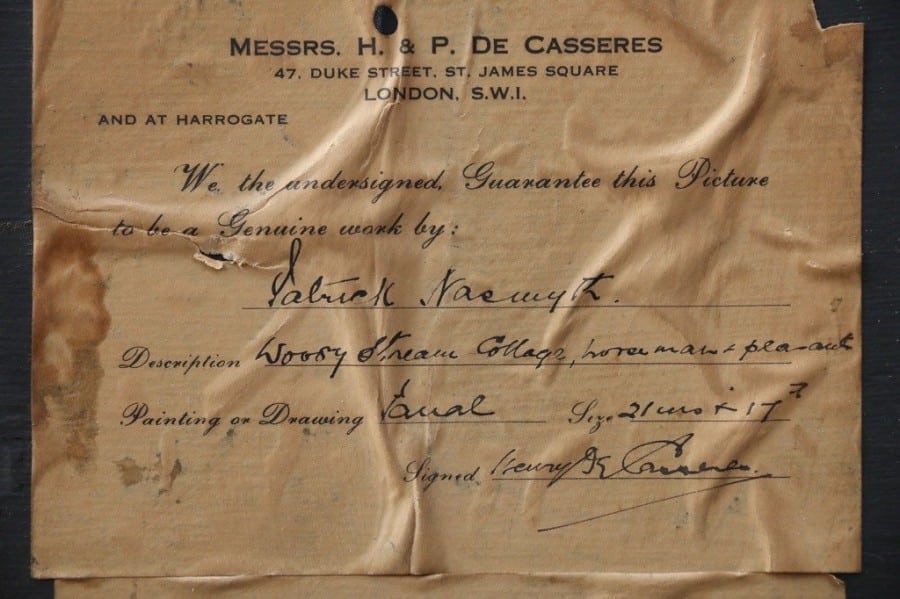 MESSRS. H. & P. DE CASSERES
47, DUKE STREET, ST. JAMES SQUARE
LONDON, S.W.1.
AND AT HARROGATE
We, the undersigned, Guarantee this Picture
to be a Genuine work by:
Patrick Nasmyth.
Description Woody Stream Cottage, horseman & peasants
Painting or Drawing Panel Size 21 ins x 17
Signed Henry De Casseres.